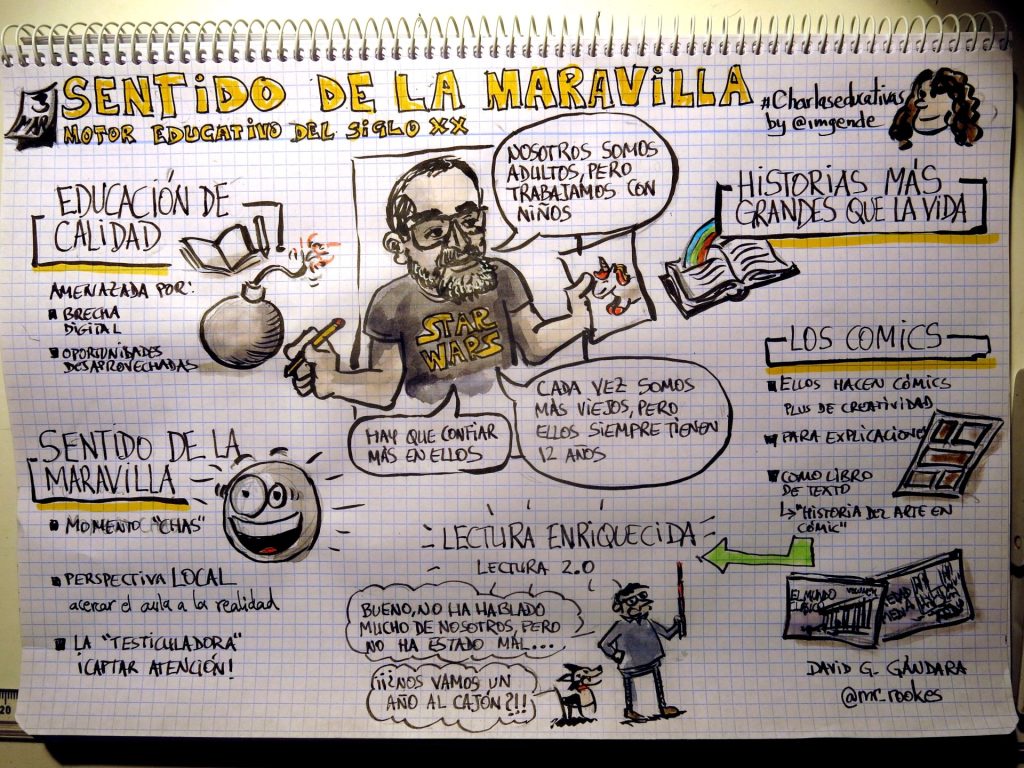 3
MAR
SENTIDO DE LA MARAVILLA
MOTOR EDUCATIVO DEL SIGLO XX
#Charlaseducativas
by @imgende
EDUCACIÓN DE
CALIDAD
AMENAZADA POR:
BRECHA
DIGITAL
OPORTUNIDADES
DESAPROVECHADAS
SENTIDO DE LA
MARAVILLA
MOMENTO "CHAS"
PERSPECTIVA LOCAL
acercar el aula a la realidad
LA "TESTICULADORA"
¡CAPTAR ATENCIÓN!
NOSOTROS SOMOS
ADULTOS, PERO
TRABAJAMOS CON
NIÑOS
STAR
WARS
HAY QUE CONFIAR
MÁS EN ELLOS
CADA VEZ SOMOS
MÁS VIEJOS, PERO
ELLOS SIEMPRE TIENEN
12 AÑOS
LECTURA ENRIQUECIDA
LECTURA 2.0
BUENO, NO HA HABLADO
MUCHO DE NOSOTROS, PERO
NO HA ESTADO MAL...
¡¡¿NOS VAMOS UN
AÑO AL CAJÓN?!!
HISTORIAS MÁS
GRANDES QUE LA VIDA
LOS COMICS
ELLOS HACEN CÓMICS
PLUS DE CREATIVIDAD
PARA EXPLICACIONES
COMO LIBRO
DE TEXTO
↳"HISTORIA DEL ARTE EN
CÓMIC"
EL MUNDO
CLÁSICO
EDAD
MEDIA
DAVID G. GÁNDARA
@mr_rookes
20